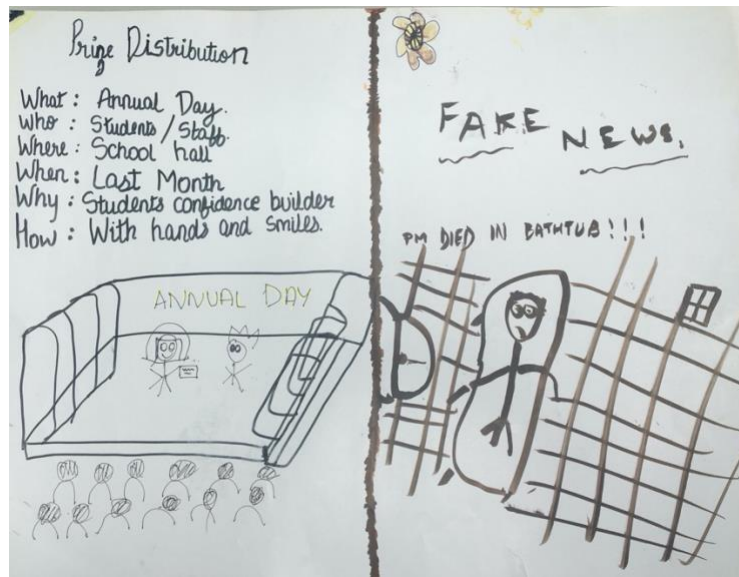 Prize Distribution
What : Annual Day.
Who : Students / Staff.
Where : School hall
When : Last Month
Why : Students confidence builder
How : With hands and smiles.
ANNUAL DAY
FAKE NEWS.
PM DIED IN BATHTUB!!!